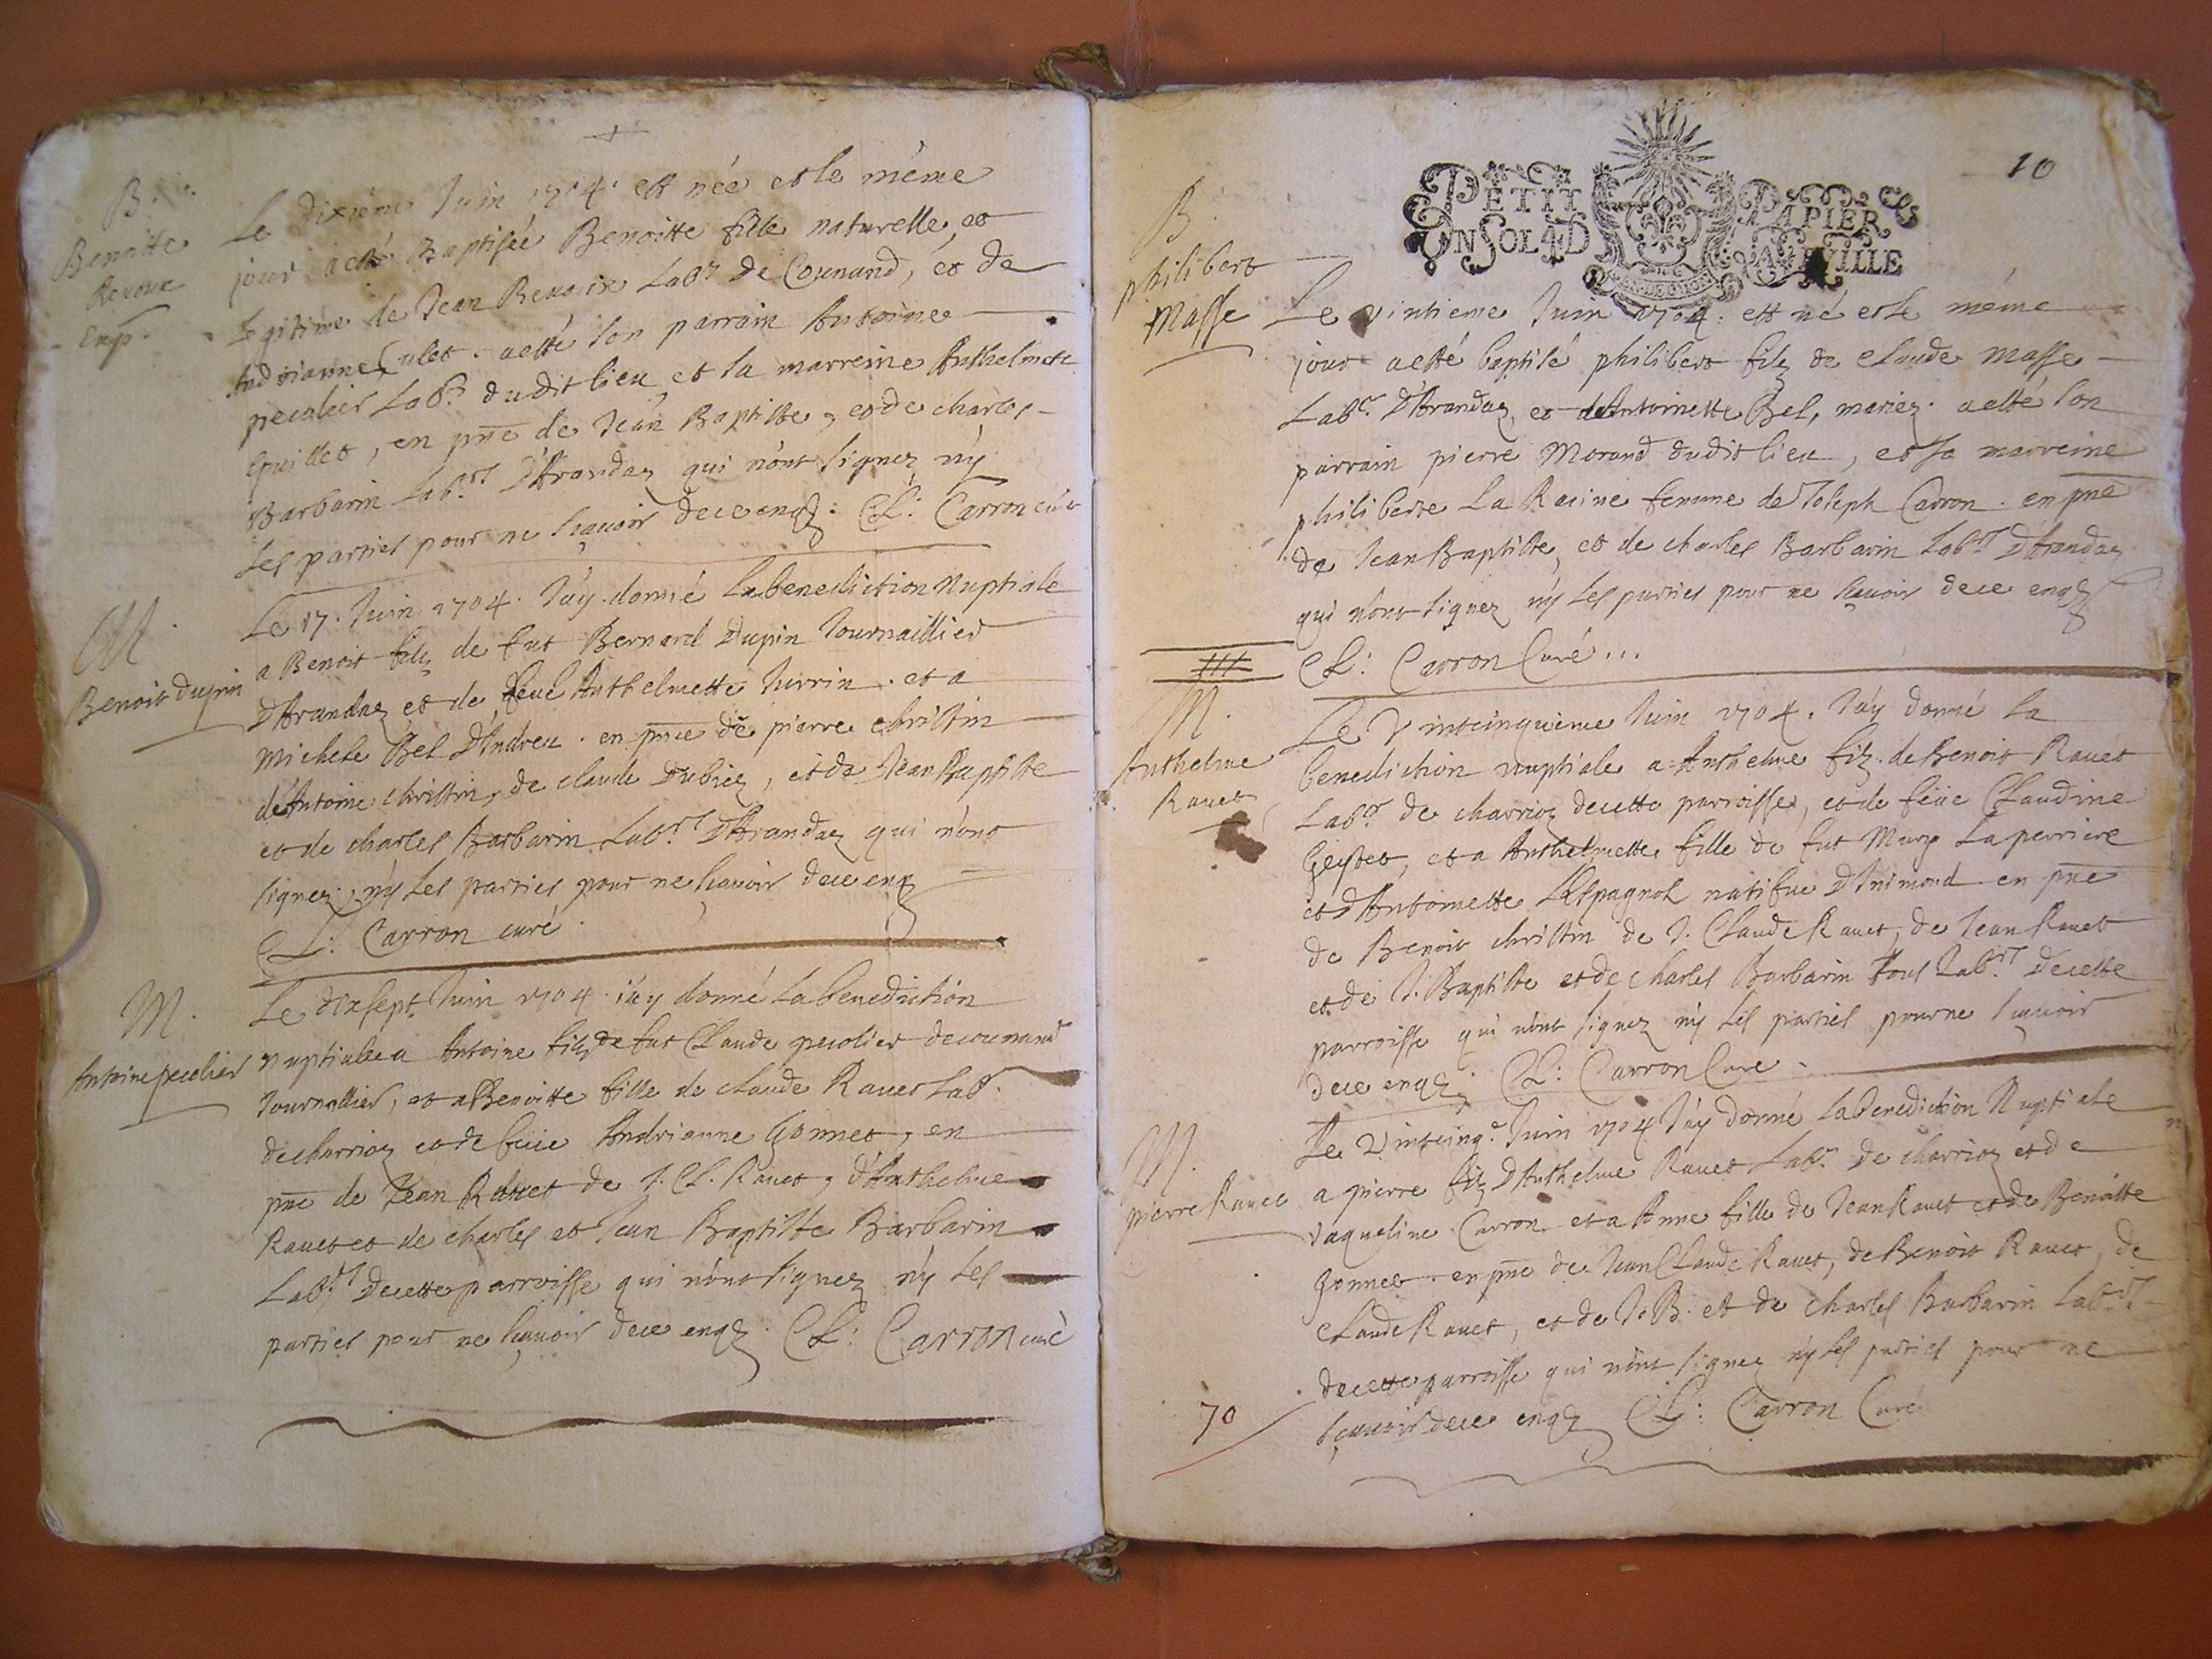 B.
Benoitte
Revoux
Enp.
Le dixieme Juin 1704. est née et le méme
jour a esté Baptisée Benoitte fille naturelle, et
Legitime de Jean Revoux Labr. De Counand, et de
Andrianne Culet. a esté son parrain Antoine
pecolier Labr. dudit lieu et sa marreine Anthelmette
Guillet, en pnce de Jean Baptiste, et de charles
Barbarin Labrs. D'Arandaz qui n'ont signez ny
les parties pour ne sçavoir de ce enqz. Cl: Carron curé
M.
Benoit dupin
Le 17. Juin 1704. J'ay donné La benediction Nuptiale
a Benoit filz de fut Bernard Dupin Journaillier
D'Arandaz et de feue Anthelmette Juvrin. et a
Michele Bel D'Andreu. en pnce de pierre christin
d'Antoine christin, de claude Dubiez, et de Jean Baptiste
et de charles Barbarin Labrs. D'Arandaz qui n'ont
signez, ny Les parties pour ne sçavoir de ce enqz
Cl: Carron curé.
M.
Antoine pecolier
Le dixsept. Juin 1704. j'ay donné La benediction
nuptiale a Antoine filz de fut Claude pecolier de counand
Journallier, et a Benoitte fille de claude Ravet Labr.
de charrioz et de feüe Andrianne Gonnet, en
pnce de Jean Ravet de J. Cl. Ravet, d'Anthelme
Ravet et de charles et Jean Baptiste Barbarin
Labrs. De cette parroisse qui n'ont signez ny Les
parties pour ne sçavoir de ce enqz. Cl: Carron curé
10
PETIT PAPIER
UN SOL 4 D LA FEVILLE
B.
philibert
Masse
Le vintieme Juin 1704. est né et le méme
jour a esté baptisé philibert filz de claude Masse
Labr. D'Arandaz et de Antoinette Bel, mariez. a esté son
parrain pierre Morand dudit lieu, et sa marreine
philiberte La Racine femme de Joseph Carron. en pnce
de Jean Baptiste, et de charles Barbarin Labrs. D'Arandaz
qui n'ont signez ny Les parties pour ne sçavoir de ce enqz
Cl: Carron Curé...
M.
Anthelme
Ravet
Le Vintcinquieme Juin 1704. J'ay donné La
benediction nuptiale a Anthelme filz. de Benoit Ravet
Labr. de charrioz de cette parroisse, et de feüe Claudine
Geystet, et a Anthelmette fille de fut Marg Laperriere
et D'Antoinette L'Espagnol natifve D'Inimond. en pnce
de Benoit christin de J. Claude Ravet, de Jean Ravet
et de J. Baptiste et de charles Barbarin tous Labrs. De cette
parroisse qui n'ont signez ny Les parties pour ne sçavoir
de ce enqz. Cl: Carron Curé.
M.
pierre Ravet
Le Vintcinqe. Juin 1704 J'ay donné La benediction Nuptiale
a pierre filz D'Anthelme Ravet Labr. De charrioz et de
Jaqueline Carron et a Anne fille de Jean Ravet et de Benoitte
Gonnet. en pnce de Jean Claude Ravet, de Benoit Ravet, de
claude Ravet, et de J. B. et de charles Barbarin Labrs.
de cette parroisse qui n'ont signez ny Les parties pour ne
sçavoir de ce enqz Cl: Carron Curé
70